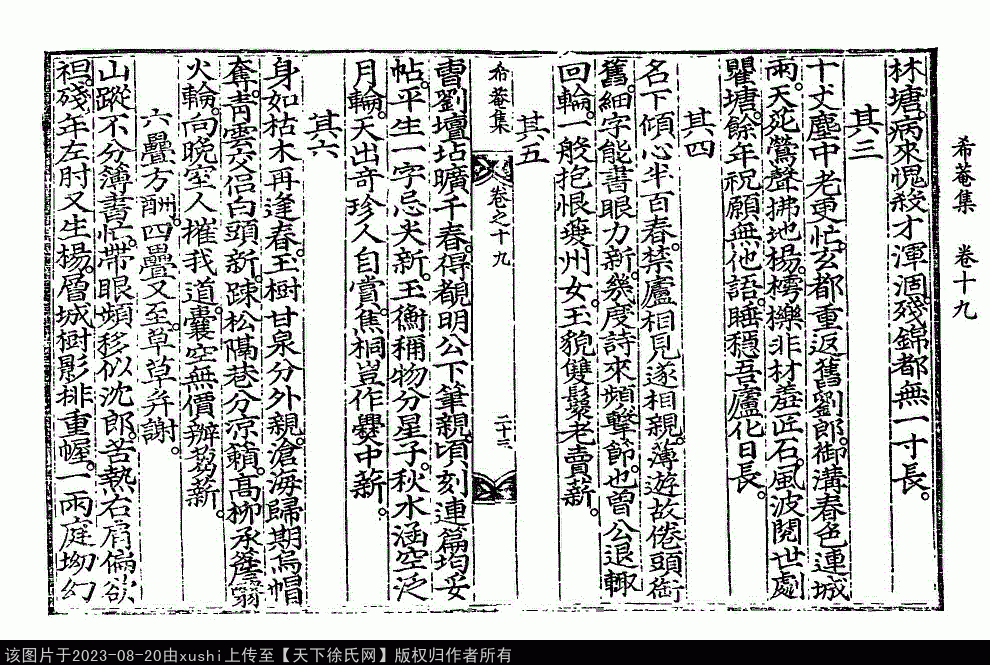 希菴集 卷十九
林塘。病來愧殺才渾涸。殘錦都無一寸長。
其三
十丈塵中老更忙。玄都重返舊劉郎。御溝春色連城
雨。天苑鶯聲拂地楊。樗櫟非材羞匠石。風波閱世處
瞿塘。餘年祝願無他語。睡穩吾廬化日長。
其四
名下傾心半百春。禁廬相見遂相親。薄遊故倦頭銜
舊。細字能書眼力新。幾度詩來頻擊節。也曾公退輒
回輪。一般抱恨 州女。玉貌雙鬟老賣薪。
其五
希菴集 卷之十九 二十三
雪劉壇坫曠千春。得覩明公下筆親。頃刻連篇均妥
帖。平生一字忌尖新。玉衡稱物分星子。秋水涵空泛
月輪。天出奇珍人自賞。焦桐豈作爨中薪。
其六
身如枯木再逢春。玉樹甘泉分外親。滄海歸期烏帽
奪。青雲交誼白頭新。踈松隔巷分涼籟。高柳承簷翳
火輪。向晚室人摧我道。囊空無價辦芻薪。
六疊方酬。四疊又至。草草幷謝。
山蹤不分簿書忙。帶眼頻移似沈郎。苦熱右肩偏欲
袒。殘年左肘又生楊。層城樹影排重幄。一兩庭坳幻
该图片于2023-08-20由xushi上传至【天下徐氏网】版权归作者所有